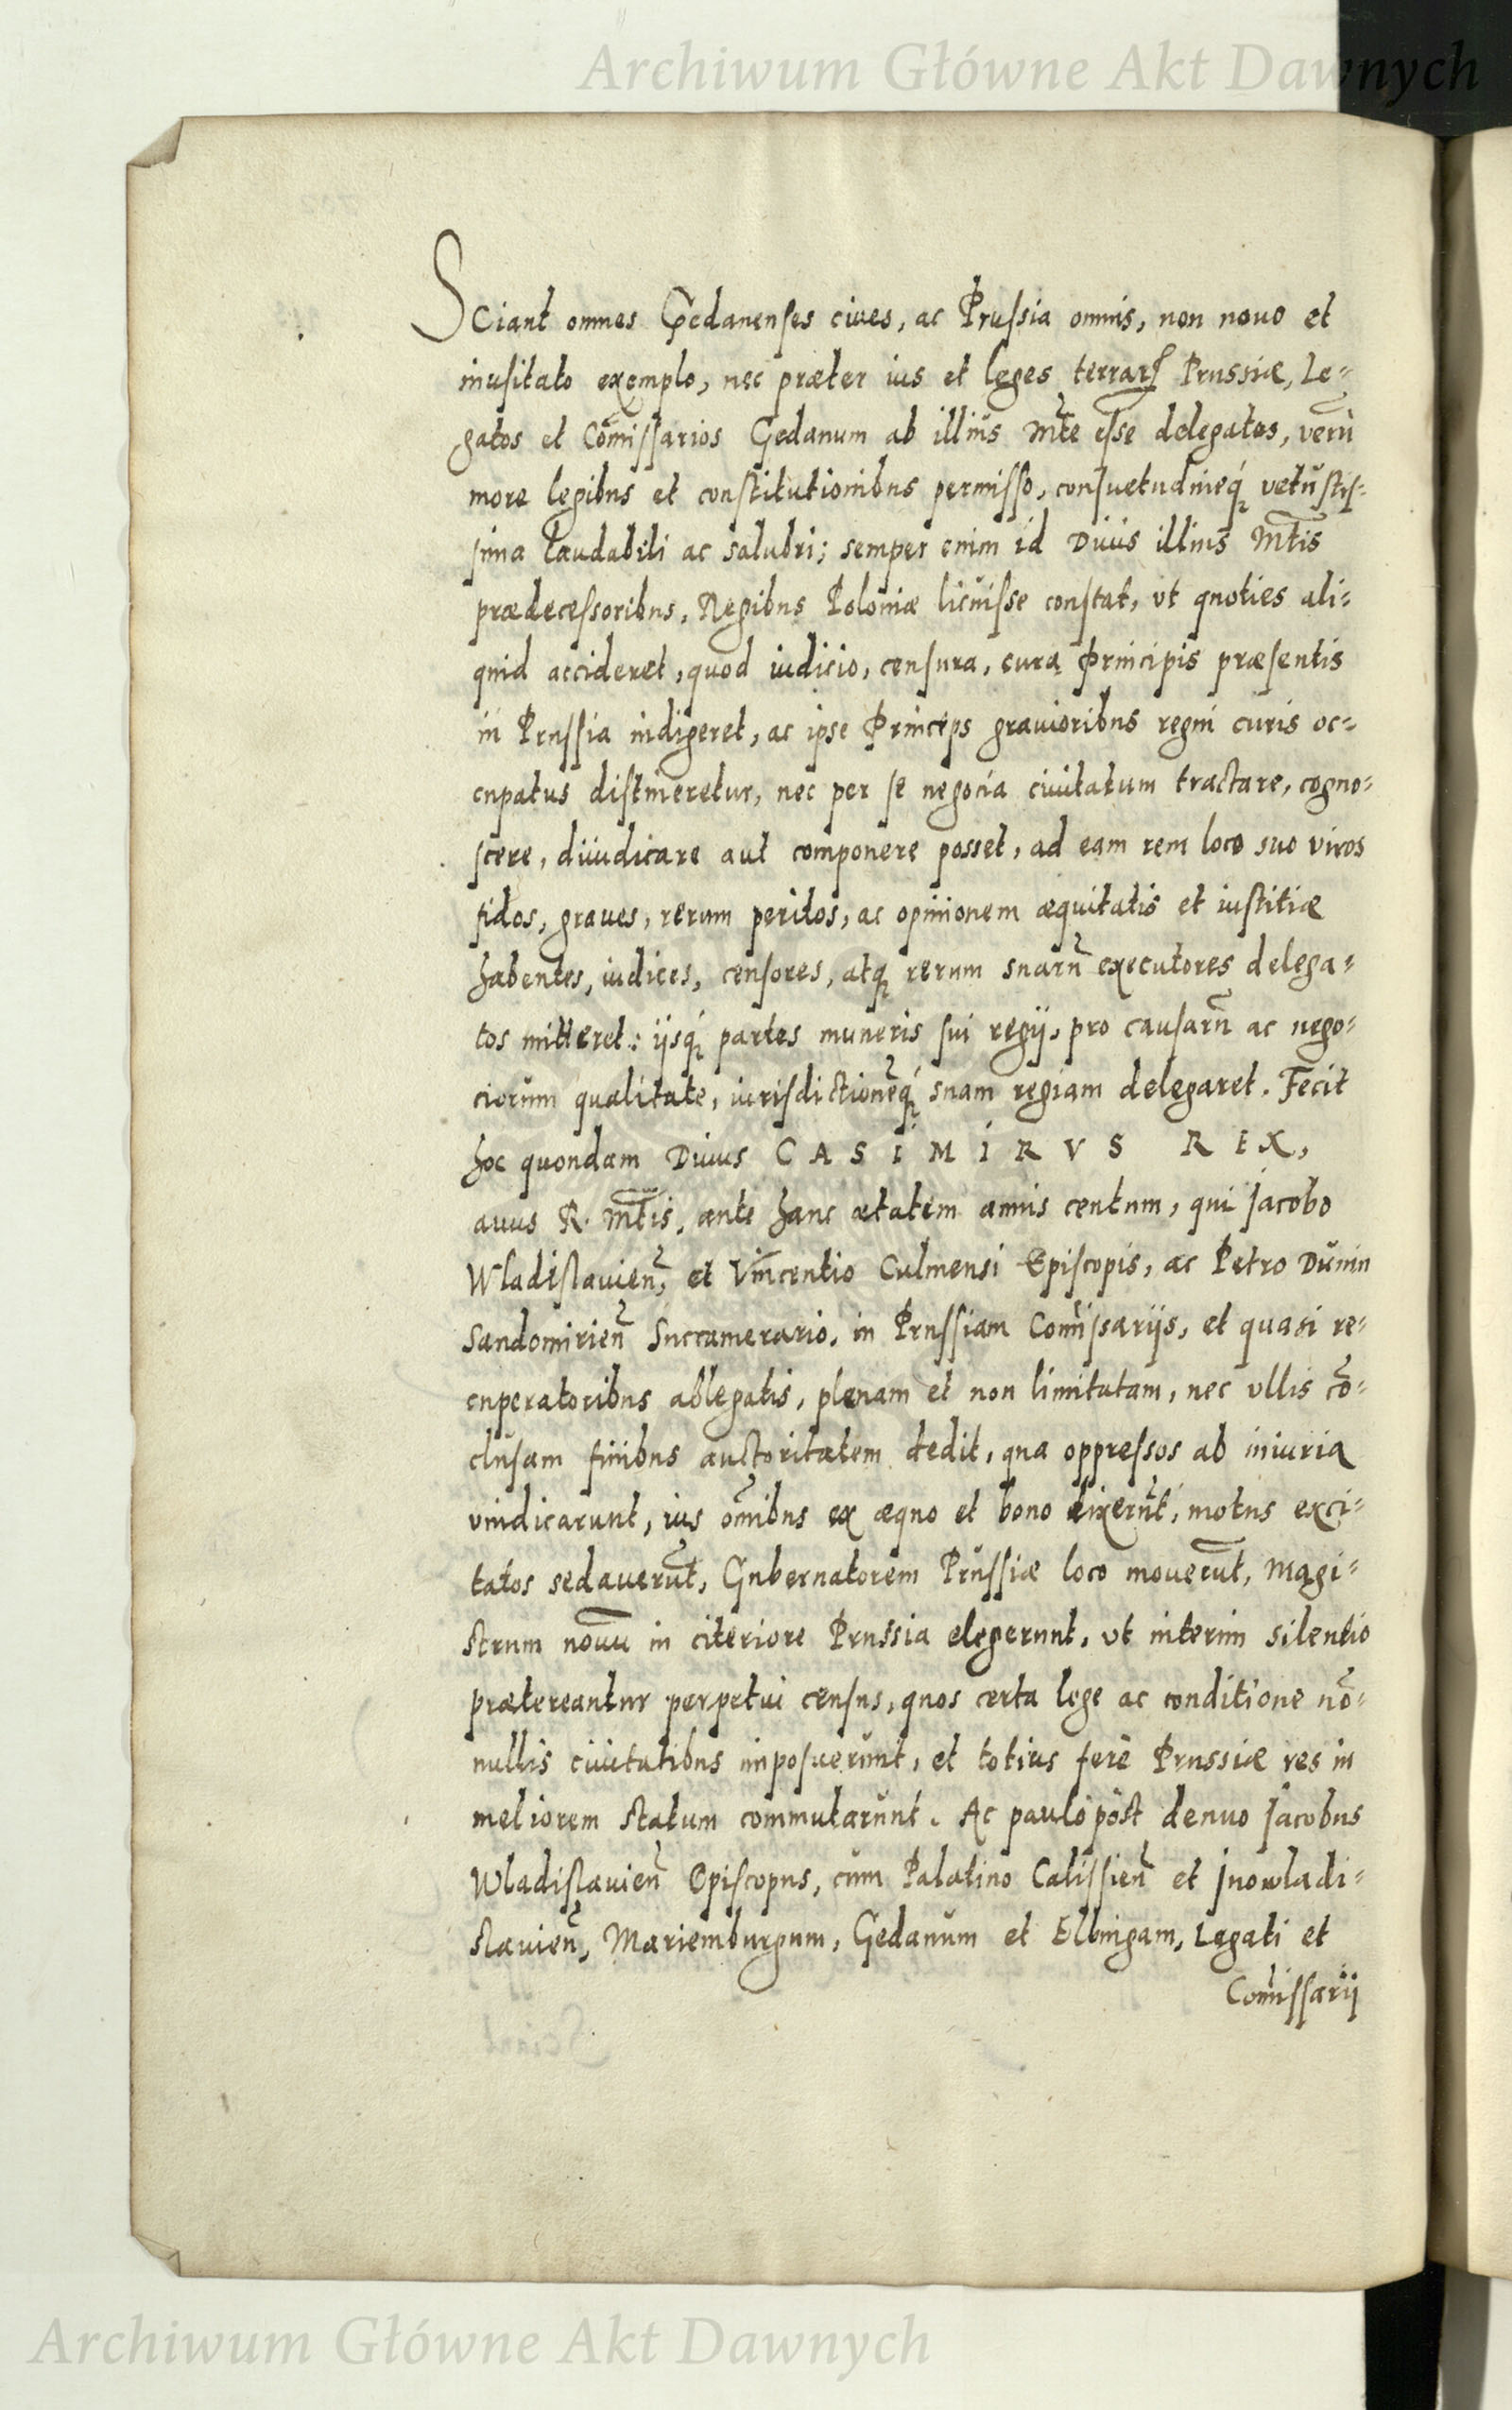 Archiwum Główne Akt Dawnych
Sciant omnes Gedanenses ciues, ac Prussia omnis, non nouo et
inusitato exemplo, nec præter ius et leges terrarꝝ Prussiæ, Le=
gatos et Com̃issarios Gedanum ab illius Mt̃e esse delegatos, verũ
more legibus et constitutionibus permisso, consuetudineq́ꝫ vetustis=
sima laudabili ac salubri; semper enim id Diuis illius Mt̃is
prædecessoribus, Regibus Poloniæ licuisse constat, vt quoties ali=
quid accideret, quod iudicio, censura, cura Principis præsentis
in Prussia indigeret, ac ipse Princeps grauioribus regni curis oc=
cupatus distineretur, nec per se negocia ciuitatum tractare, cogno=
scere, diiudicare aut componere posset, ad eam rem loco suo viros
fidos, graues, rerum peritos, ac opinionem æquitatis et iustitiæ
habentes, iudices, censores, atqꝫ rerum suarũ executores delega=
tos mitteret: ijsq́ꝫ partes muneris sui regij, pro causarũ ac nego=
ciorum qualitate, iurisdictionẽq́ꝫ suam regiam delegaret. Fecit
hoc quondam Diuus CASIMIRVS REX,
auus R. Mt̃is, ante hanc ætatem annis centum, qui Jacobo
Wladislauien̄, et Vincentio Culmensi Episcopis, ac Petro Dunin
Sandomirien̄ Succamerario, in Prussiam Com̃issarijs, et quasi re=
cuperatoribus ablegatis, plenam et non limitatam, nec vllis cõ=
clusam finibus auctoritatem dedit, qua oppressos ab iniuria
vindicarunt, ius om̃ibus ex æquo et bono dixerũt, motus exci=
tatos sedauerũt, Gubernatorem Prussiæ loco mouerũt, Magi=
strum nouũ in citeriore Prussia elegerunt, vt interim silentio
prætereantur perpetui census, quos certa lege ac conditione nõ=
nullis ciuitatibus imposuerunt, et totius ferè Prussiæ res in
meliorem statum commutarunt. Ac paulò pòst denuo Jacobus
Wladislauien̄ Episcopus, cum Palatino Calissien̄ et Jnowladi=
slauien̄, Mariemburgum, Gedanum et Elbingam, Legati et
Com̃issarij
Archiwum Główne Akt Dawnych